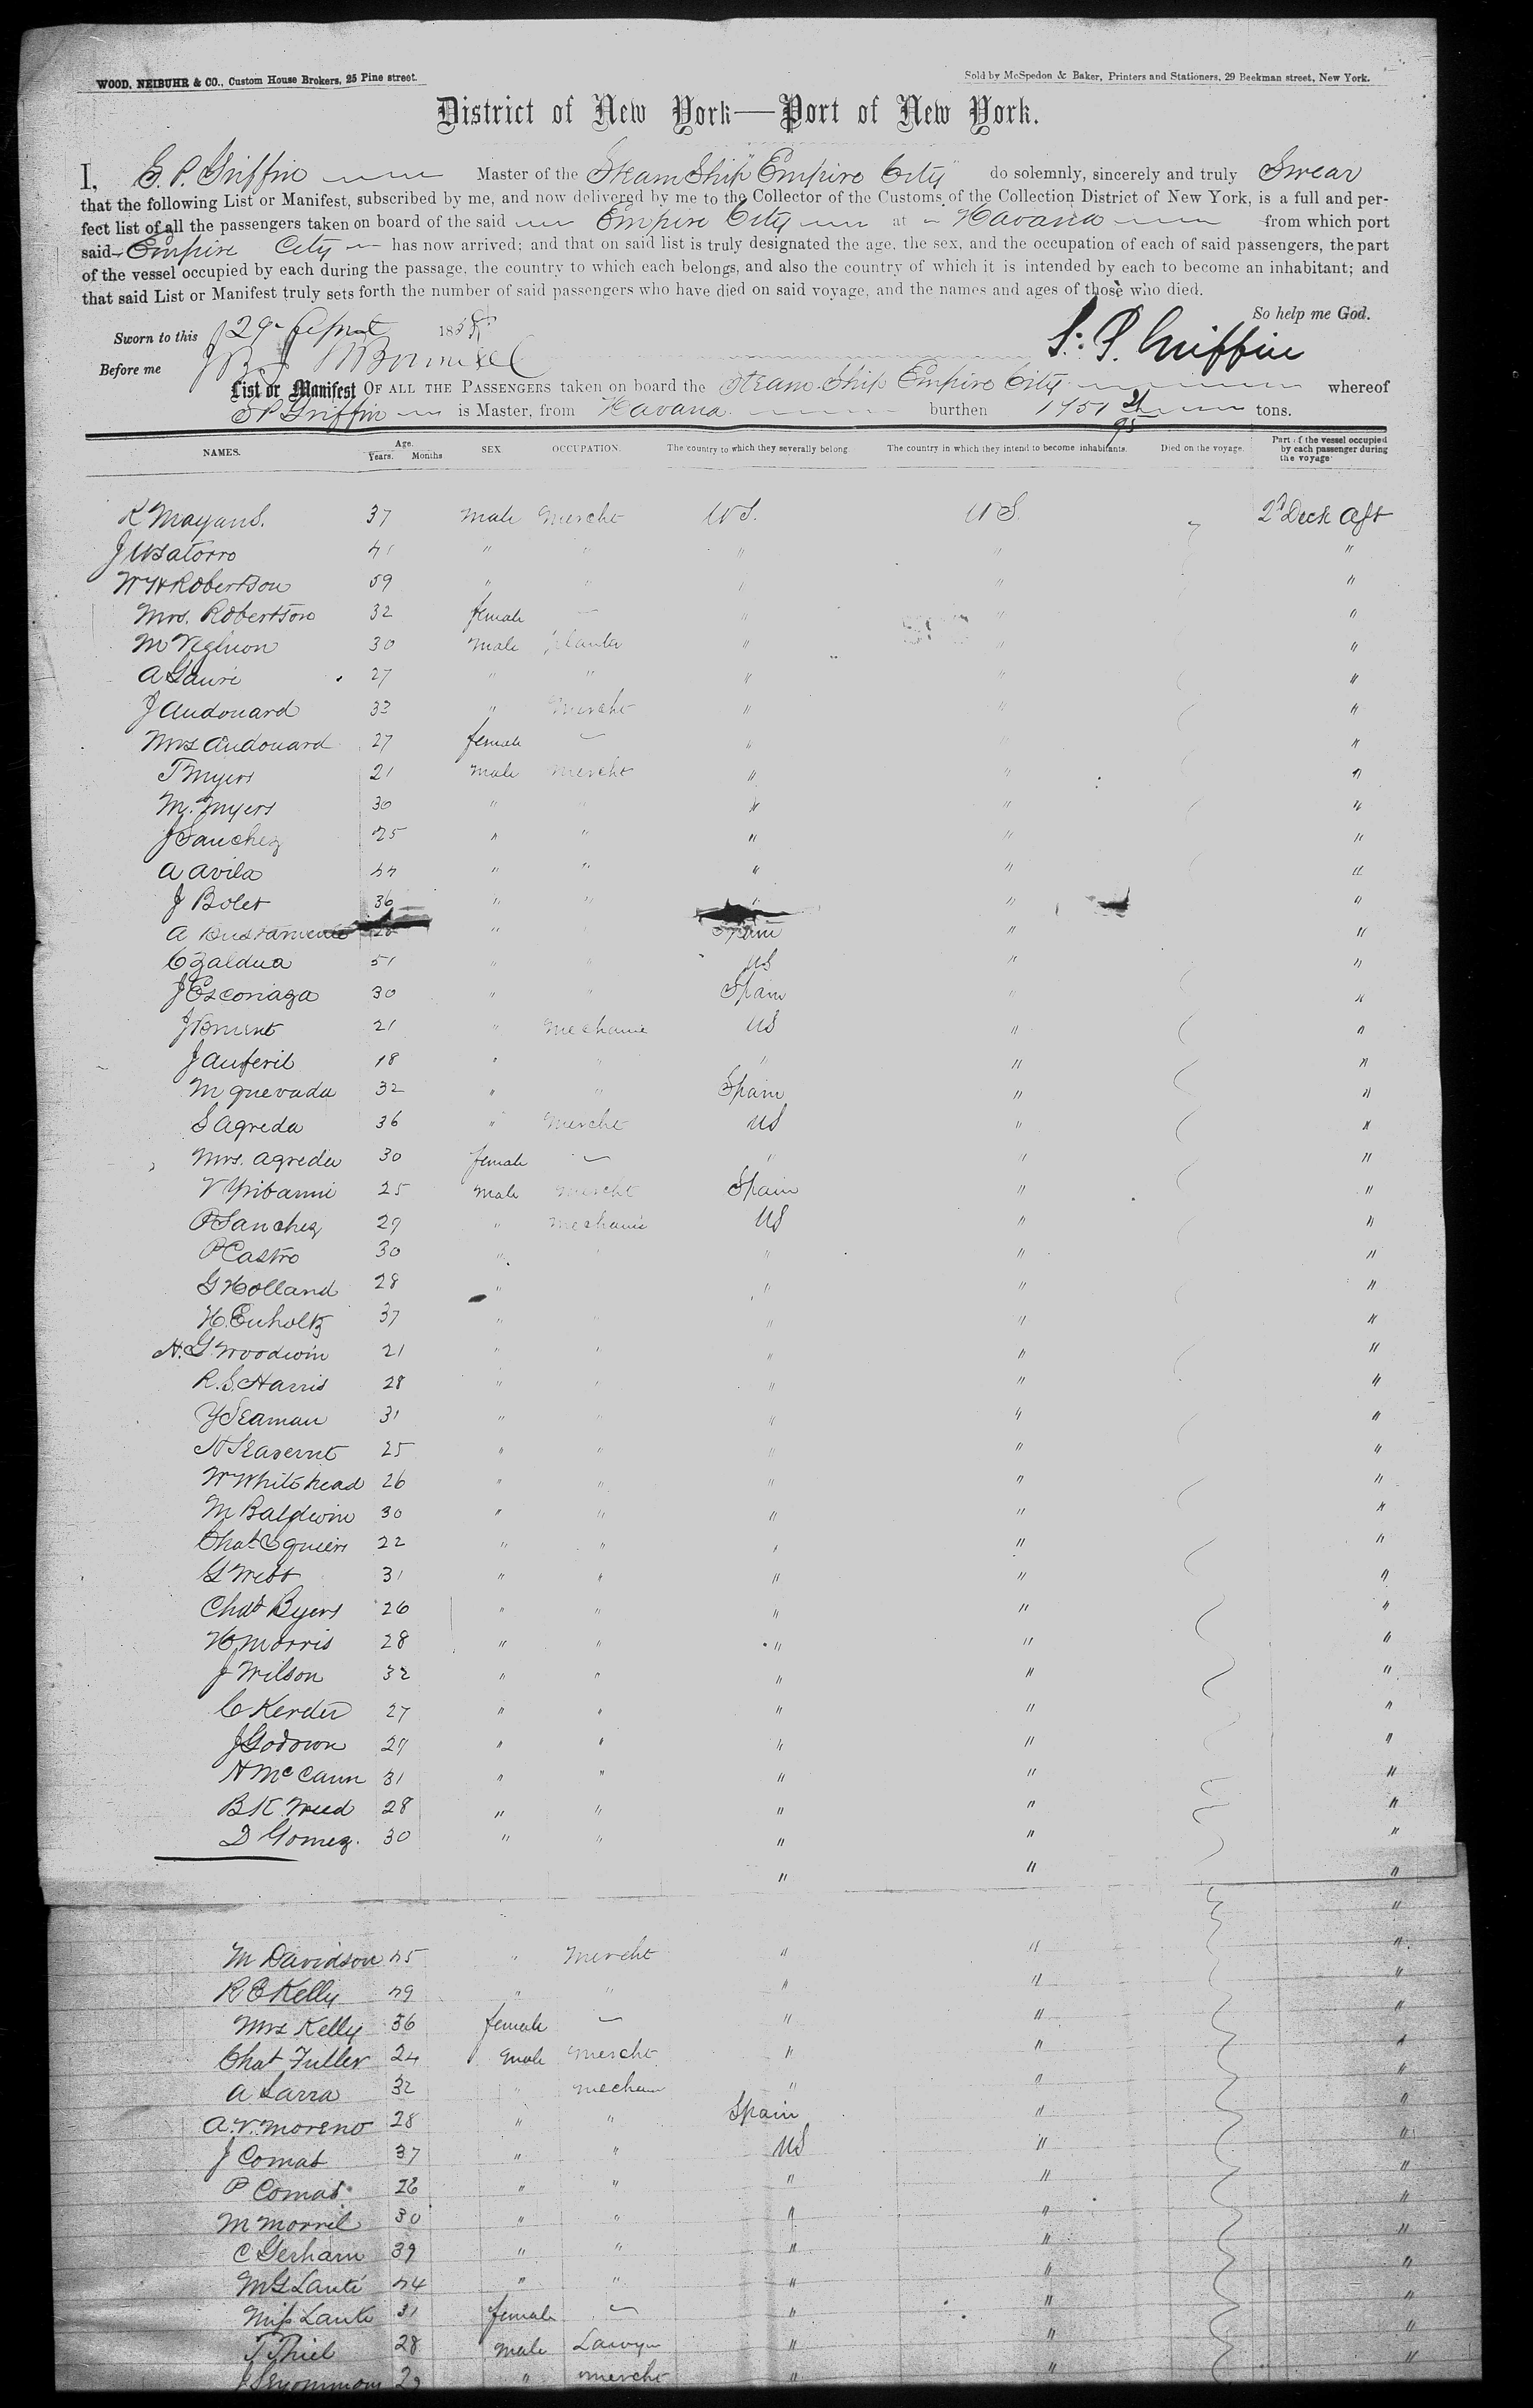 WOOD, NEIBUHR & CO., Custom House Brokers, 25 Pine street.
Sold by McSpedon & Baker, Printers and Stationers, 29 Beekman street, New York.
District of New York—Port of New York.
I, S. P. Griffin Master of the Steam Ship "Empire City" do solemnly, sincerely and truly Swear
that the following List or Manifest, subscribed by me, and now delivered by me to the Collector of the Customs of the Collection District of New York, is a full and per-
fect list of all the passengers taken on board of the said Empire City at Havana from which port
said Empire City has now arrived; and that on said list is truly designated the age, the sex, and the occupation of each of said passengers, the part
of the vessel occupied by each during the passage, the country to which each belongs, and also the country of which it is intended by each to become an inhabitant; and
that said List or Manifest truly sets forth the number of said passengers who have died on said voyage, and the names and ages of those who died.
So help me God.
Sworn to this 29 April 185
S. P. Griffin
Before me
List or Manifest OF ALL THE PASSENGERS taken on board the Steam Ship Empire City whereof
S P Griffin is Master, from Havana burthen 1751 21/95 tons.
NAMES. Age. Years. Months SEX OCCUPATION. The country to which they severally belong. The country in which they intend to become inhabitants. Died on the voyage. Part of the vessel occupied by each passenger during the voyage
37 male Mercht U S. U S. 2d Deck Aft
" " " " "
W H Robertson 59 " " " " "
Mrs. Robertson 32 female — " " "
30 male planter " " "
27 " " " " "
J Audouard 33 " Mercht " " "
Mrs Audouard 27 female — " " "
T Myers 21 male Mercht " " "
M. Myers 30 " " " " "
J Sanchez 25 " " " " "
A Avila 44 " " " " "
J Bolet 36 " " " " "
A Bustamente " " Spain " "
C Zaldua 51 " " US " "
J Esconiaga 30 " " Spain " "
21 " Mechanic US " "
J Auferil 18 " " " " "
M Quevada 32 " " Spain " "
S Agreda 36 " Mercht US " "
Mrs. Agreda 30 female — " " "
25 male Mercht Spain " "
P Sanchez 29 " Mechanic US " "
P Castro 30 " " " " "
G Holland 28 " " " "
H. Enholtz 37 " " " " "
H. G. Woodwin 21 " " " " "
R. S. Harris 28 " " " " "
Y Seaman 31 " " " " "
25 " " " " "
W Whitehead 26 " " " " "
M Baldwin 30 " " " " "
Chas Squiers 22 " " " " "
G Webb 31 " " " " "
Chas Byers 26 " " " " "
H Morris 28 " " " " "
J Wilson 32 " " " " "
C Kerder 27 " " " " "
J Godown 29 " " " " "
H McCann 31 " " " " "
B K Weed 28 " " " " "
D Gomez. 30 " " " " "
" " "
"
M Davidson 45 " Mercht " " "
R E Kelly 49 " " " " "
Mrs Kelly 36 female — " " "
Chas Fuller 24 male Mercht " " "
A Larra 32 " Mechan " " "
A. V. Moreno 28 " " Spain " "
J Comas 37 " " US " "
P Comas 26 " " " " "
M Morril 30 " " " " "
C Gerham 39 " " " " "
M G Lanti 44 " " " " "
Miss Lanti 31 female — " " "
T Thiel 28 male Lawyer " " "
" Mercht " "